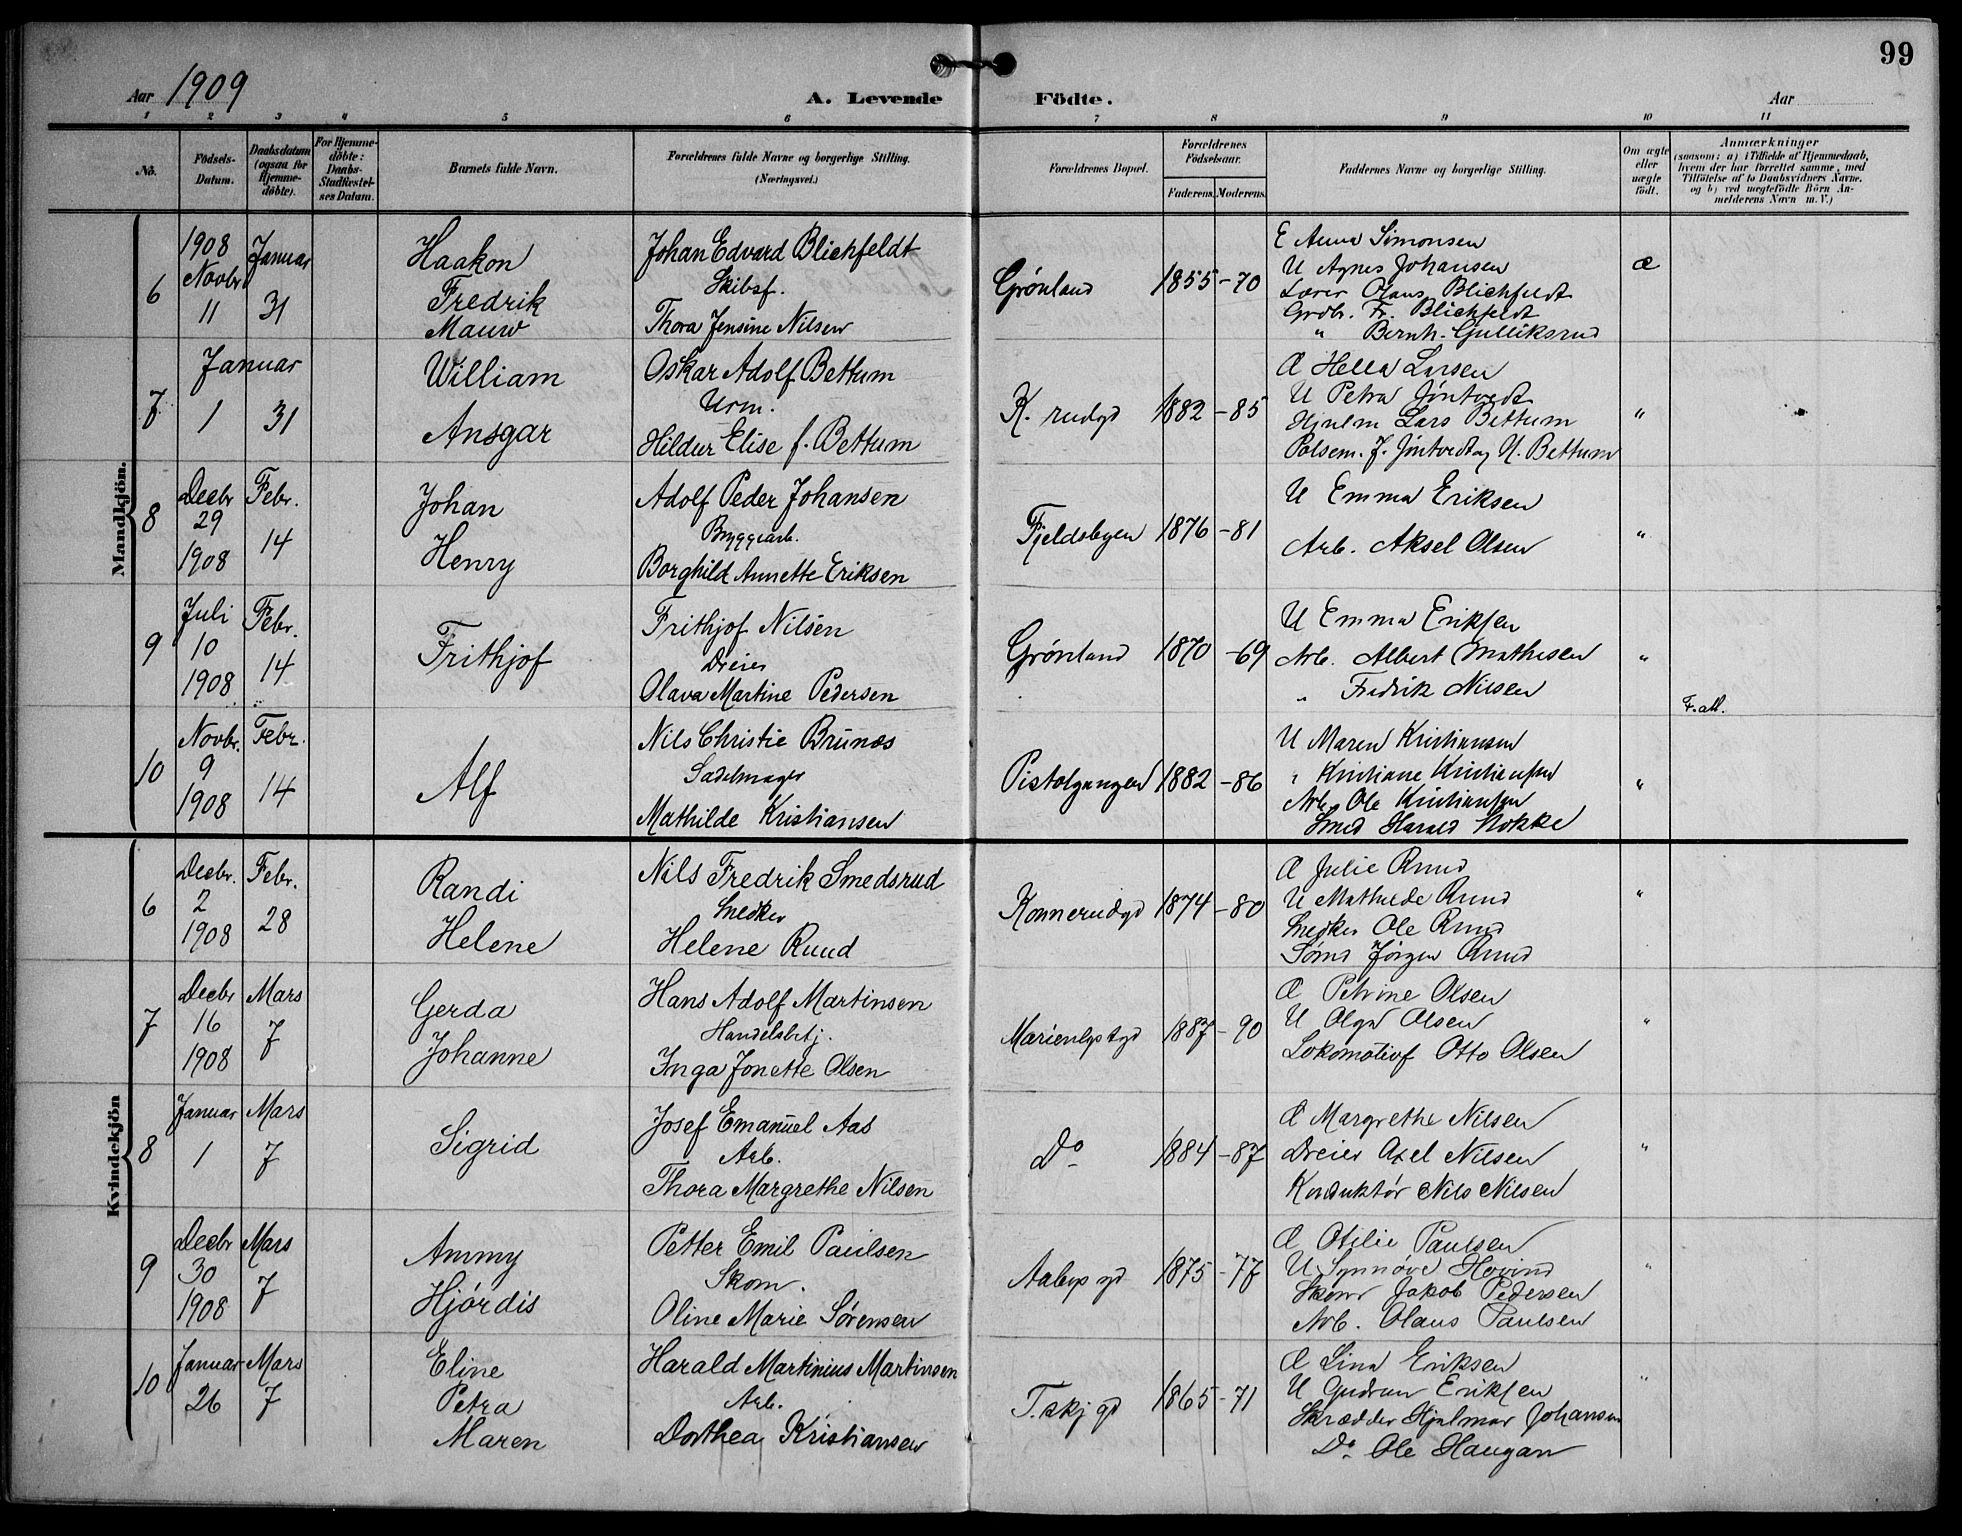 99
Aar 1909
A. Levende Födte.
Aar
1 2 3 4 5 6 7 8 9 10 11
No.
Födsels-Datum.
Daabsdatum (ogsaa for Hjemme-döbte).
For Hjemme-döbte: Daabs-Stadfæstel-ses Datum.
Barnets fulde Navn.
Forældrenes fulde Navne og borgerlige Stilling.
(Næringsvei.)
Forældrenes Bopæl.
Forældrenes Födselsaar.
Faderens. Moderens.
Faddernes Navne og borgerlige Stilling.
Om ægte eller uægte födt.
Anmærkninger
(saasom: a) i Tilfælde af Hjemmedaab, hvem der har forrettet samme, med Tilföielse af to Daabsvidners Navne. og b) ved uægtefödte Börn An-melderens Navn m. V.)
Mandkjön.
6
1908 Novbr 11
Januar 31
Haakon
Fredrik
Johan Edvard Blichfeldt
Skibsf.
Thora Jensine Nilsen
Grønland
1855 -70
E Anna Simonsen
U Agnes Johansen
Lærer Olaus Blichfeldt
Grdbr. Fr. Blichfeldt
" Bernh. Gulliksrud
æ
7
Januar
1 31
William
Ansgar
Oskar Adolf Bettum
Urm.
Hildur Elise f. Bettum
K. rudgd
1882 -85
Æ Hella Larsen
U Petra Jøntvedt
Lars Bettum
Polsem. J. Jøntvedt og N. Bettum
"
8
Decbr 29 1908
Febr. 14
Johan
Henry
Adolf Peder Johansen
Bryggearb.
Borghild Annette Eriksen
Fjeldsbyen
1876 -81
U Emma Eriksen
Arb. Aksel Olsen
"
9
Juli 10 1908
Febr. 14
Frithjof
Frithjof Nilsen
Dreier
Olava Martine Pedersen
Grønland
1870 -69
U Emma Eriksen
Arb. Albert Mathisen
" Fredrik Nilsen
"
F. att.
10
Novbr. 9 1908
Febr. 14
Alf
Nils Christie Brunæs
Sadelmager
Mathilde Kristiansen
Pistolgangen
1882 -86
U Maren Kristiansen
" Kristiane Kristiansen
Arb. Ole Kristiansen
Smed Harald Nokke
"
Kvindekjön
6
Decbr. 2 1908
Febr. 28
Randi
Helene
Nils Fredrik Smedsrud
Snedker
Helene Ruud
Konnerudgd
1874 -80
Æ Julie Ruud
U Mathilde Ruud
Snedker Ole Ruud
Sømd Jörgen Ruud
"
7
Decbr 16 1908
Mars 7
Gerda
Johanne
Hans Adolf Martinsen
Handelsbetj.
Inga Jonette Olsen
Marienlystgd
1887 -90
Æ Petrine Olsen
U Olga Olsen
Lokomotivf Otto Olsen
"
8
Januar 1
Mars 7
Sigrid
Josef Emanuel Aas
Arb.
Thora Margrethe Nilsen
Do
1884 -87
Æ Margrethe Nilsen
Dreier Axel Nilsen
Konduktör Nils Nilsen
"
9
Decbr 30 1908
Mars 7
Ammy
Hjördis
Petter Emil Paulsen
Skom.
Oline Marie Sørensen
Aabys gd
1875 -77
Æ Otilie Paulsen
U Synnöve Hovind
Skom Jakob Pedersen
Arb. Olaus Paulsen
"
10
Januar 26
Mars 7
Eline
Petra
Maren
Harald Martinius Martinsen
Arb.
Dorthea Kristiansen
T.skj gd
1865 -71
Æ Lina Eriksen
U Gudrun Eriksen
Skrædder Hjalmar Johansen
Do Ole Haugan
"